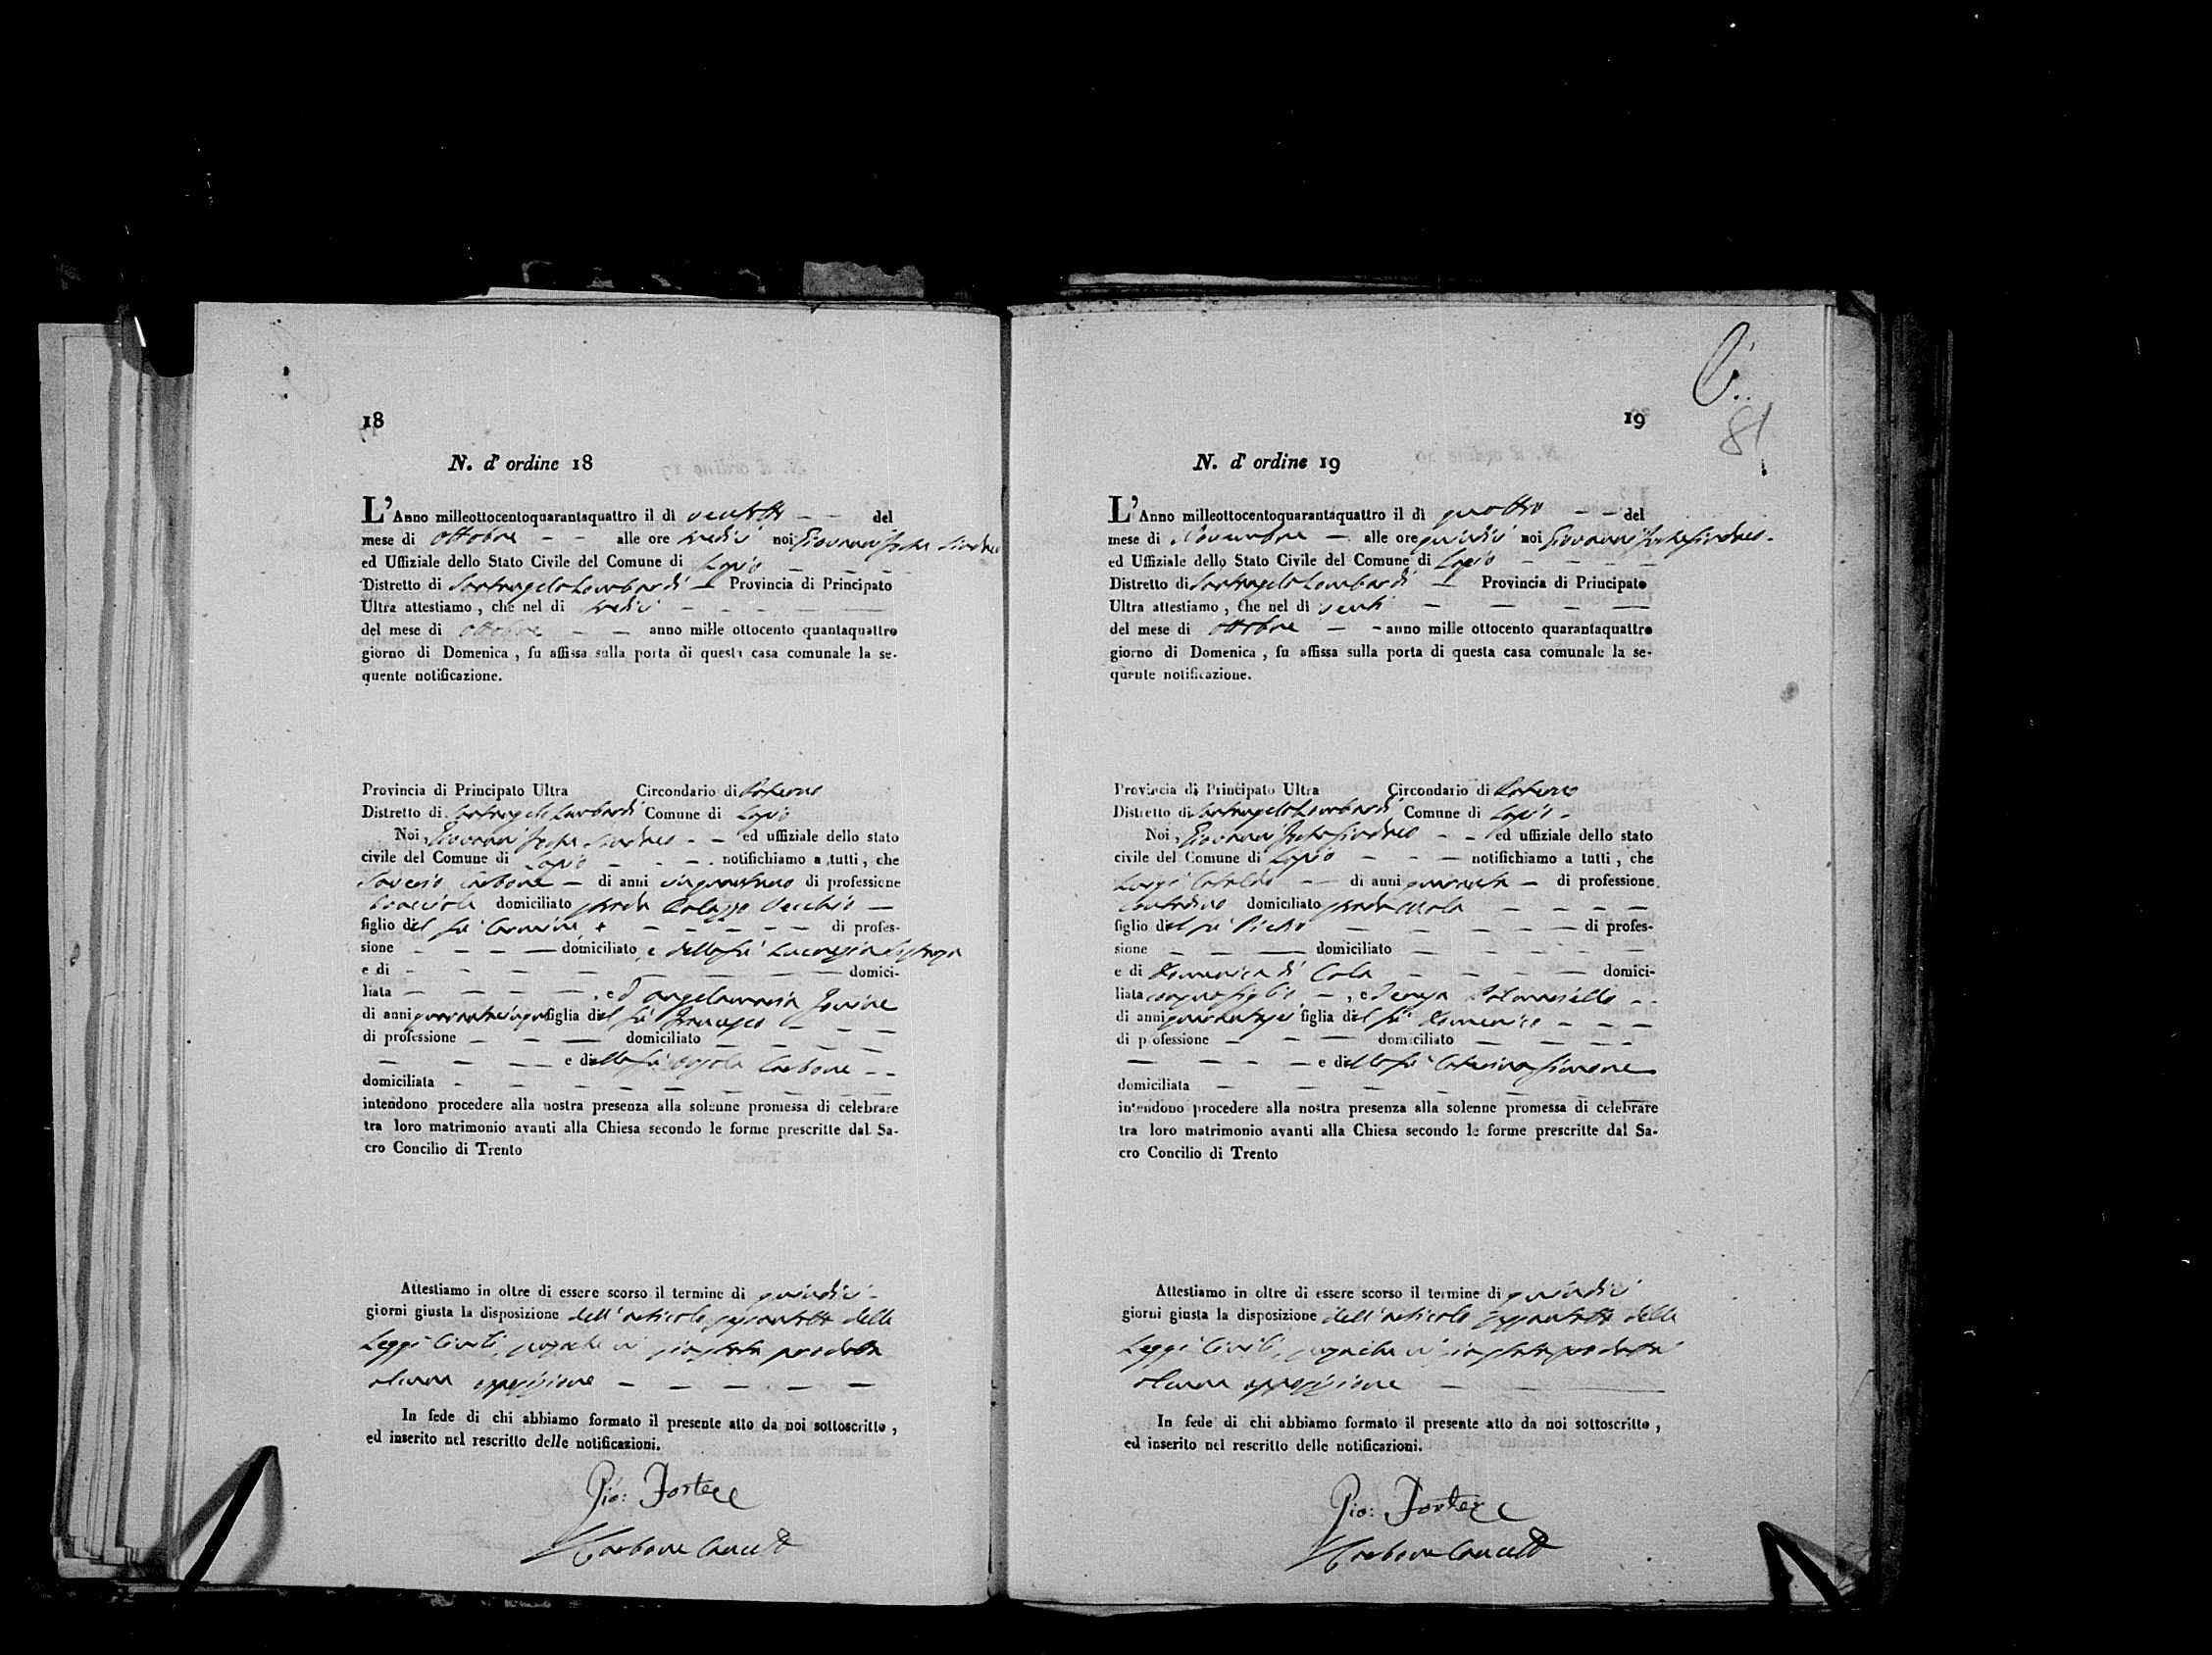 18
N. d' ordine 18
L' Anno milleottocentoquarantaquattro il dì ventotto del
mese di Ottobre alle ore tredici noi Giovanni Forte Sindaco
ed Uffiziale dello Stato Civile del Comune di Lapio
Distretto di Santangelo Lombardi Provincia di Principato
Ultra attestiamo, che nel dì tredici
del mese di ottobre anno mille ottocento quantaquattro
giorno di Domenica, fu affissa sulla porta di questa casa comunale la se-
quente notificazione.
Provincia di Principato Ultra Circondario di Paterno
Distretto di Santangelo Lombardi Comune di Lapio
Noi, Giovanni Forte Sindaco ed uffiziale dello stato
civile del Comune di Lapio notifichiamo a tutti, che
Saverio Carbone di anni di professione
domiciliato strada Palazzo Vecchio
figlio del fù Carmine di profes-
sione domiciliato, e della fù
e di domici-
liata, ed Angelamaria Iovine
di anni quarantacinque figlia del fù Francesco
di professione domiciliato
e della fù Carbone
domiciliata
intendono procedere alla nostra presenza alla solenne promessa di celebrare
tra loro matrimonio avanti alla Chiesa secondo le forme prescritte dal Sa-
cro Concilio di Trento
Attestiamo in oltre di essere scorso il termine di quindici
giorni giusta la disposizione dell'articolo sessantotto delle
Leggi Civili, senza che vi sia stata prodotta
alcuna opposizione
In fede di chi abbiamo formato il presente atto da noi sottoscritto,
ed inserito nel rescritto delle notificazioni.
Gio: Forte
Carbone Canc
19
81
N. d' ordine 19
L' Anno milleottocentoquarantaquattro il dì quattro del
mese di Novembre alle ore quindici noi Giovanni Forte Sindaco
ed Uffiziale dello Stato Civile del Comune di Lapio
Distretto di Santangelo Lombardi Provincia di Principato
Ultra attestiamo, che nel dì venti
del mese di ottobre anno mille ottocento quarantaquattro
giorno di Domenica, fu affissa sulla porta di questa casa comunale la se-
quente notificazione.
Provincia di Principato Ultra Circondario di Paterno
Distretto di Santangelo Lombardi Comune di Lapio
Noi, Giovanni Forte Sindaco ed uffiziale dello stato
civile del Comune di Lapio notifichiamo a tutti, che
Luigi Cataldo di anni quaranta di professione
Contadino domiciliato strada
figlio del fù Pietro di profes-
sione domiciliato
e di Domenica di Cola domici-
liata, ed
di anni figlia del fù Domenico
di professione domiciliato
e della fù Caterina Simone
domiciliata
intendono procedere alla nostra presenza alla solenne promessa di celebrare
tra loro matrimonio avanti alla Chiesa secondo le forme prescritte dal Sa-
cro Concilio di Trento
Attestiamo in oltre di essere scorso il termine di quindici
giorni giusta la disposizione dell'articolo sessantotto delle
Leggi Civili, senza che vi sia stata prodotta
alcuna opposizione
In fede di chi abbiamo formato il presente atto da noi sottoscritto,
ed inserito nel rescritto delle notificazioni.
Gio: Forte
Carbone Canc